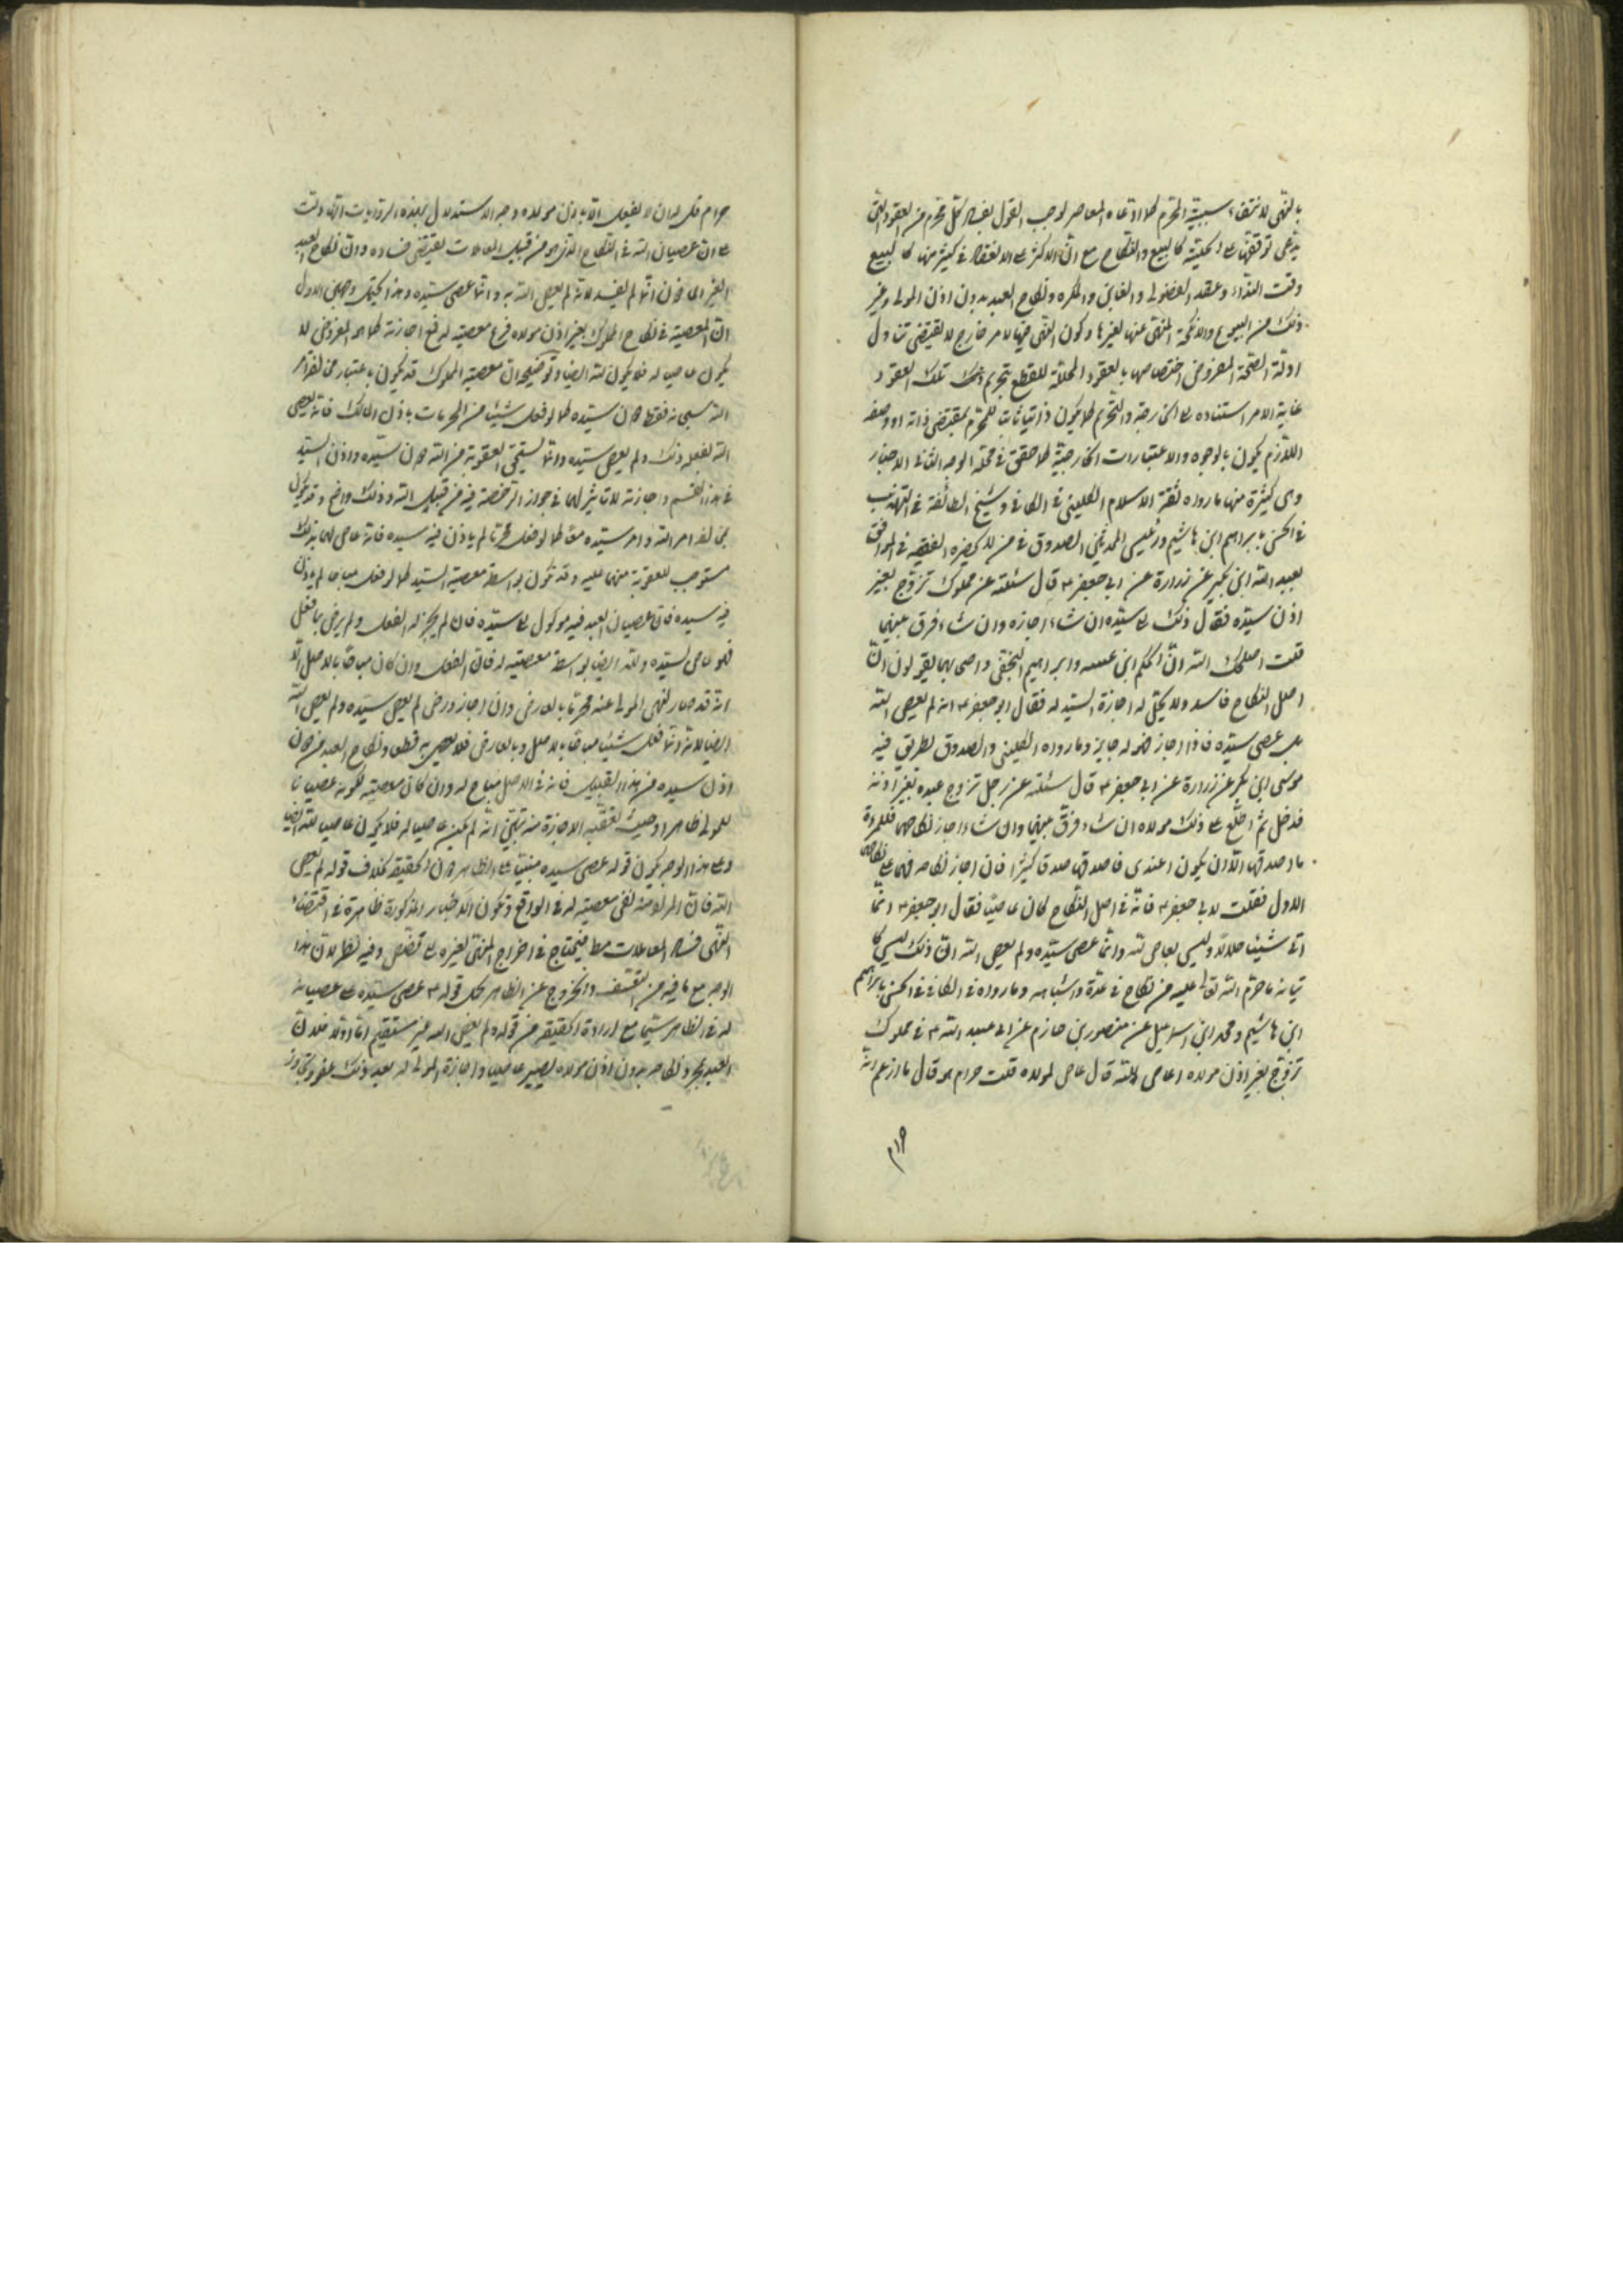 بالنهى لانتفاء سببية المحرم كما ادعاه المعاصر لوجب القول بفساد كل محرم من العقود التى
يدعى توقفها على الحلية كالبيع والنكاح مع ان الاكثر على الانعقاد فى كثير منها كالبيع
وقت النداء وعقد الفضولى والغابن والمكره ونكاح العبد بدون اذن المولى وغير
ذلك من البيوع والانكحة المنهى عنها لغيرها وكون النهى فيها لامر خارج لا يقتضى تناول
ادلة الصحة المفروض اختصاصها بالعقود المحللة للقطع بتحريم تلك العقود
غاية الامر استناده الى الخارج والتحريم كما يكون ذاتيا ثابتا للمحرم بمقتضى ذاته او وصفه
اللازم يكون بالوجوه والاعتبارات الخارجية كما حقق فى محله الوجه الثانى الاخبار
وهى كثيرة منها ما رواه ثقة الاسلام الكلينى فى الكافى وشيخ الطائفة فى التهذيب
فى الحسن بابراهيم ابن هاشم ورئيس المحدثين الصدوق فى من لا يحضره الفقيه فى الموثق
بعبد الله ابن بكير عن زرارة عن ابى جعفر ع قال سئلته عن مملوك تزوج بغير
اذن سيده فقال ذلك الى سيده ان شاء اجازه وان شاء فرق بينهما
قلت اصلحك الله ان الحكم ابن عيينه وابراهيم النخعى واصحابهما يقولون ان
اصل النكاح فاسد ولا يحل له اجازة السيد له فقال ابو جعفر ع انه لم يعص الله
بل عصى سيده فاذا اجاز فهو له جايز وما رواه الكلينى والصدوق بطريق فيه
موسى ابن بكر عن زرارة عن ابى جعفر ع قال سئلته عن رجل تزوج عبده بغير اذنه
فدخل ثم اطلع على ذلك مولاه ان شاء فرق بينهما وان شاء اجاز نكاحهما فللمرءة
ما اصدقها الا ان يكون اعتدى فاصدقها صداقا كثيرا فان اجاز نكاحه فهما على نكاحهما
الاول فقلت لابى جعفر ع فانه فى اصل النكاح كان عاصيا فقال ابو جعفر ع انما
اتى شيئا حلالا وليس بعاص لله وانما عصى سيده ولم يعص الله ان ذلك ليس كا
تيانه ما حرم الله تعالى عليه من نكاح فى عدة واشباهه وما رواه فى الكافى فى الحسن بابراهيم
ابن هاشم ومحمد ابن اسماعيل عن منصور بن حازم عن ابى عبد الله ع فى مملوك
تزوج بغير اذن مولاه اعاص لله قال عاص لمولاه قلت حرام هو قال ما ازعم انه
حرام قل له ان لا يفعل الا باذن مولاه وجه الاستدلال بهذه الروايات انها دلت
على ان عصيان الله فى النكاح الذى هو من قبيل المعاملات يقتضى فساده وان نكاح العبد
بغير الاذن انما لم يفسد لانه لم يعص الله به وانما عصى سيده وهذا يحتمل وجهين الاول
ان المعصية فى نكاح المملوك بغير اذن مولاه فرع معصيته له فمع اجازته كما هو المفروض لا
يكون عاصيا له فلا يكون لله ايضا وتوضيحه ان معصية المملوك قد يكون باعتبار مخالفة امر
الله سبحانه فقط دون سيده كما لو فعل شيئا من المحرمات باذن المالك فانه يعصى
الله بفعله ذلك ولم يعص سيده وانما يستحق العقوبة من الله دون سيده واذن السيد
فى هذا القسم واجازته لا تاثير لها فى جواز الرخصة فيه من قبيل الله وذلك واضح وقد يكون
بمخالفة امر الله وامر سيده معا كما لو فعل محرما لم ياذن فيه سيده فانه عاص لهما بذلك
مستوجب للعقوبة منهما عليه وقد يكون بواسطة معصية السيد كما لو فعل مباحا لم ياذن
فيه سيده فان عصيان العبد فيه موكول الى سيده فان لم يجز له الفعل ولم يرض بما فعل
فهو عاص لسيده ولله ايضا بواسطة معصيته له فان الفعل وان كان مباحا بالاصل الا
انه قد صار لنهى المولى عنه محرما بالعارض وان اجاز ورضى لم يعص سيده ولم يعص الله
ايضا لانه انما فعل شيئا مباحا بالاصل وبالعارض فلا يعصى به قطعا ونكاح العبد من دون
اذن سيده من هذا القبيل فانه فى الاصل مباح له وان كان معصيته لكونه عصيانا
للمولى ظاهرا وحيث تعقبه الاجازة منه تبين انه لم يكن عاصيا له فلا يكون عاصيا لله ايضا
وعلى هذا الوجه يكون قوله عصى سيده مبنيا على الظاهر دون الحقيقة بخلاف قوله لم يعص
الله فان المراد منه نفى معصيته له فى الواقع وتكون الاخبار المذكورة ظاهرة فى اقتضاء
النهى فساد المعاملات مطلقا فيحتاج فى اخراج المنهى لغيره الى مخصص وفيه نظر لان هذا
الوجه مع ما فيه من التعسف والخروج عن الظاهر بحمل قوله ع عصى سيده على عصيانه
له فى الظاهر سيما مع ارادة الحقيقة من قوله ولم يعص الله غير مستقيم اما اولا فلان
العبد بمجرد نكاحه بدون اذن مولاه يصير عاصيا واجازة المولى له بعد ذلك عفو وتجاوز
٣١٩